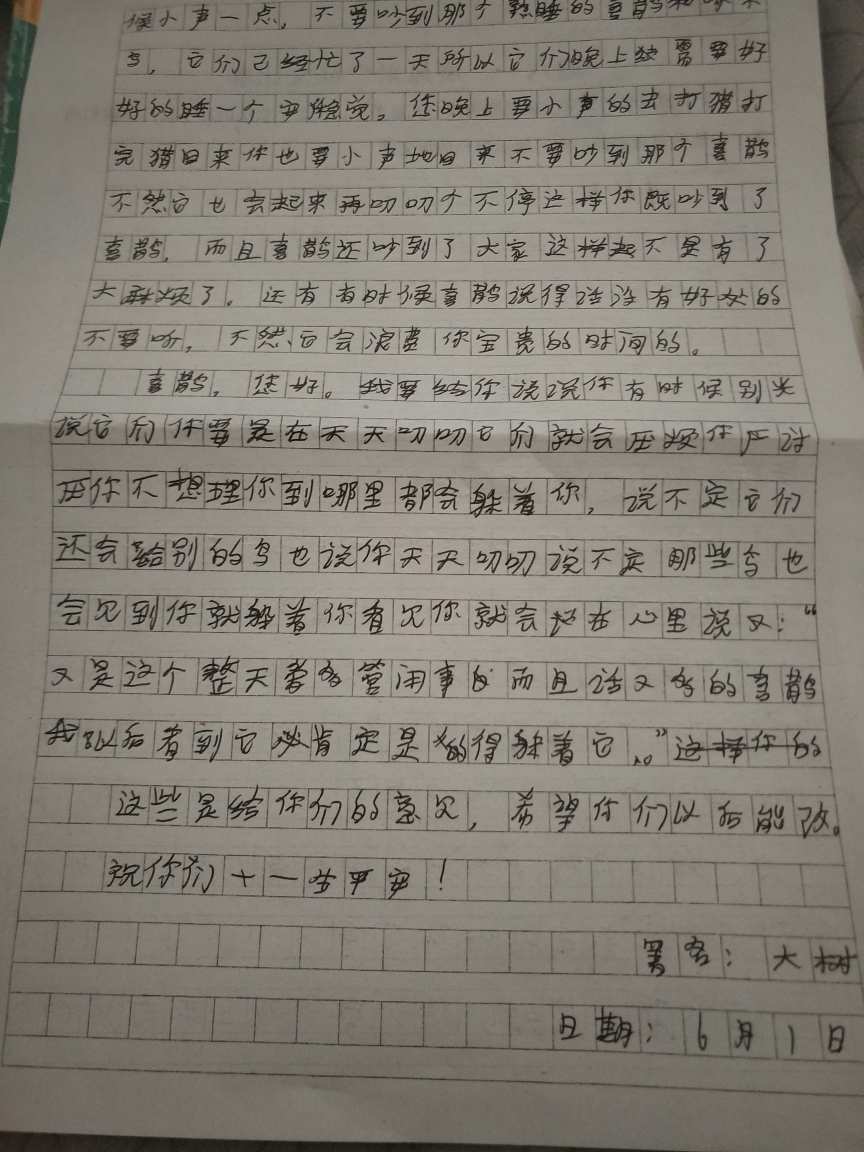 候小声一点，不要吵到那个熟睡的喜鹊和啄木
鸟，它们已经忙了一天所以它们晚上就需要好
好的睡一个安稳觉。您晚上要小声的去打猎打
完猎回来你也要小声地回来不要吵到那个喜鹊
不然它也会起来再叨叨个不停这样你既吵到了
喜鹊，而且喜鹊还吵到了大家这样起不是有了
大麻烦了。还有有时候喜鹊说得话没有好处的
不要听，不然它会浪费你宝贵的时间的。
喜鹊，您好。我要给你说说你有时候别光
说它们你要是在天天叨叨它们就会压烦你严讨
压你不想理你到哪里都会躲着你，说不定它们
还会给别的鸟也说你天天叨叨说不定那些鸟也
会见到你就躲着你看见你就会在心里说又：“
又是这个整天爱多管闲事的而且话又多的喜鹊
我以后看到它必肯定是的得躲着它。”这样你的
这些是给你们的意见，希望你们以后能改。
祝你们十一生平安！
署名：大树
日期：6月1日